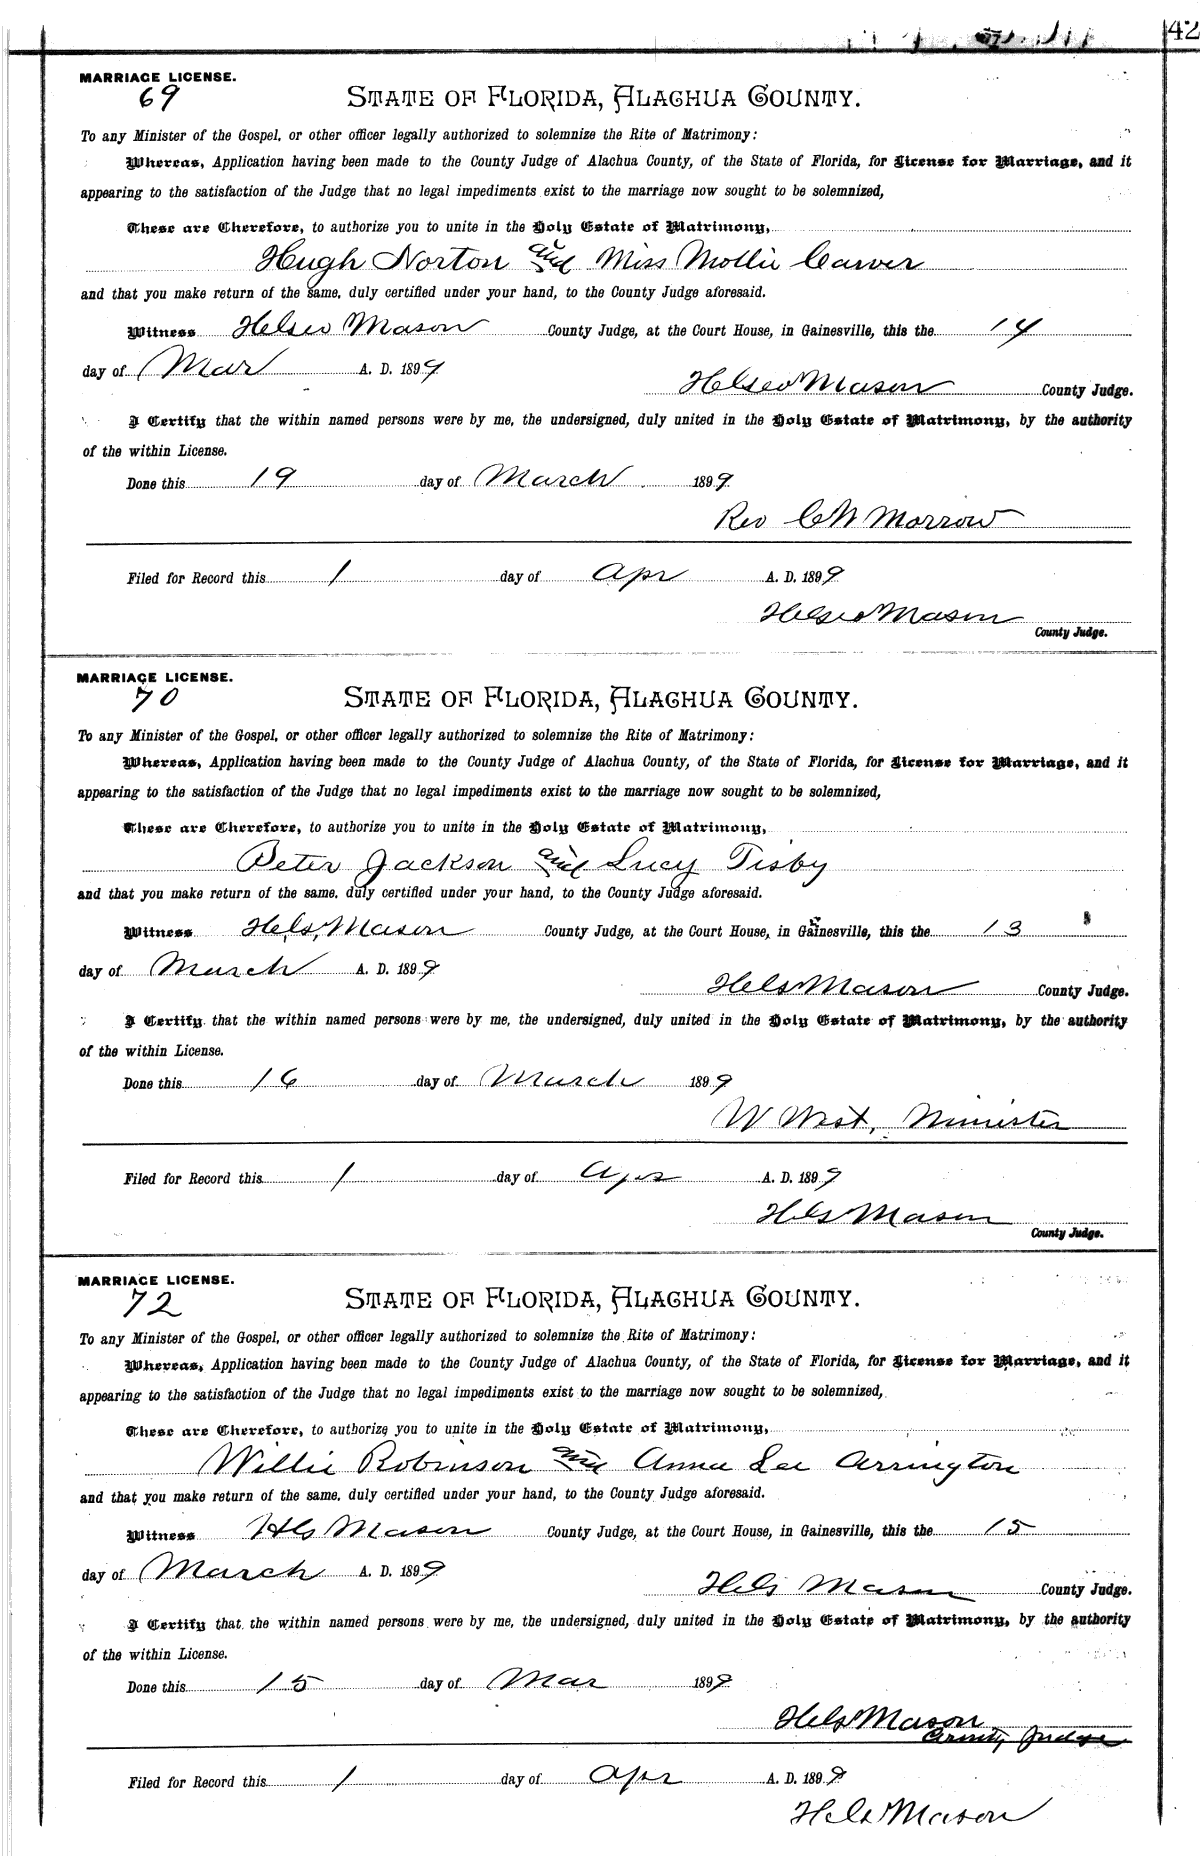 42
MARRIAGE LICENSE.
69
STATE OF FLORIDA, ALACHUA COUNTY.
To any Minister of the Gospel, or other officer legally authorized to solemnize the Rite of Matrimony:
Whereas, Application having been made to the County Judge of Alachua County, of the State of Florida, for License for Marriage, and it
appearing to the satisfaction of the Judge that no legal impediments exist to the marriage now sought to be solemnized,
These are Therefore, to authorize you to unite in the Holy Estate of Matrimony,
Hugh Norton and Miss Mollie Carver
and that you make return of the same, duly certified under your hand, to the County Judge aforesaid.
Witness Mason County Judge, at the Court House, in Gainesville, this the 14
day of Mar A. D. 1899
Mason County Judge.
I Certify that the within named persons were by me, the undersigned, duly united in the Holy Estate of Matrimony, by the authority
of the within License.
Done this 19 day of March 1899
Rev C W Morrow
Filed for Record this 1 day of Apr A. D. 1899
Mason
County Judge.
MARRIAGE LICENSE.
70
STATE OF FLORIDA, ALACHUA COUNTY.
To any Minister of the Gospel, or other officer legally authorized to solemnize the Rite of Matrimony:
Whereas, Application having been made to the County Judge of Alachua County, of the State of Florida, for License for Marriage, and it
appearing to the satisfaction of the Judge that no legal impediments exist to the marriage now sought to be solemnized,
These are Therefore, to authorize you to unite in the Holy Estate of Matrimony,
Peter Jackson and Lucy Tisby
and that you make return of the same, duly certified under your hand, to the County Judge aforesaid.
Witness Mason County Judge, at the Court House, in Gainesville, this the 13
day of March A. D. 1899
Mason County Judge.
I Certify that the within named persons were by me, the undersigned, duly united in the Holy Estate of Matrimony, by the authority
of the within License.
Done this 16 day of March 1899
W West, Minister
Filed for Record this 1 day of Apr A. D. 1899
Mason
County Judge.
MARRIAGE LICENSE.
72
STATE OF FLORIDA, ALACHUA COUNTY.
To any Minister of the Gospel, or other officer legally authorized to solemnize the Rite of Matrimony:
Whereas, Application having been made to the County Judge of Alachua County, of the State of Florida, for License for Marriage, and it
appearing to the satisfaction of the Judge that no legal impediments exist to the marriage now sought to be solemnized,
These are Therefore, to authorize you to unite in the Holy Estate of Matrimony,
Willie Robinson and Anna Lee Arrington
and that you make return of the same, duly certified under your hand, to the County Judge aforesaid.
Witness Mason County Judge, at the Court House, in Gainesville, this the 15
day of March A. D. 1899
Mason County Judge.
I Certify that the within named persons were by me, the undersigned, duly united in the Holy Estate of Matrimony, by the authority
of the within License.
Done this 15 day of Mar 1899
Mason
County Judge
Filed for Record this 1 day of Apr A. D. 1899
Mason